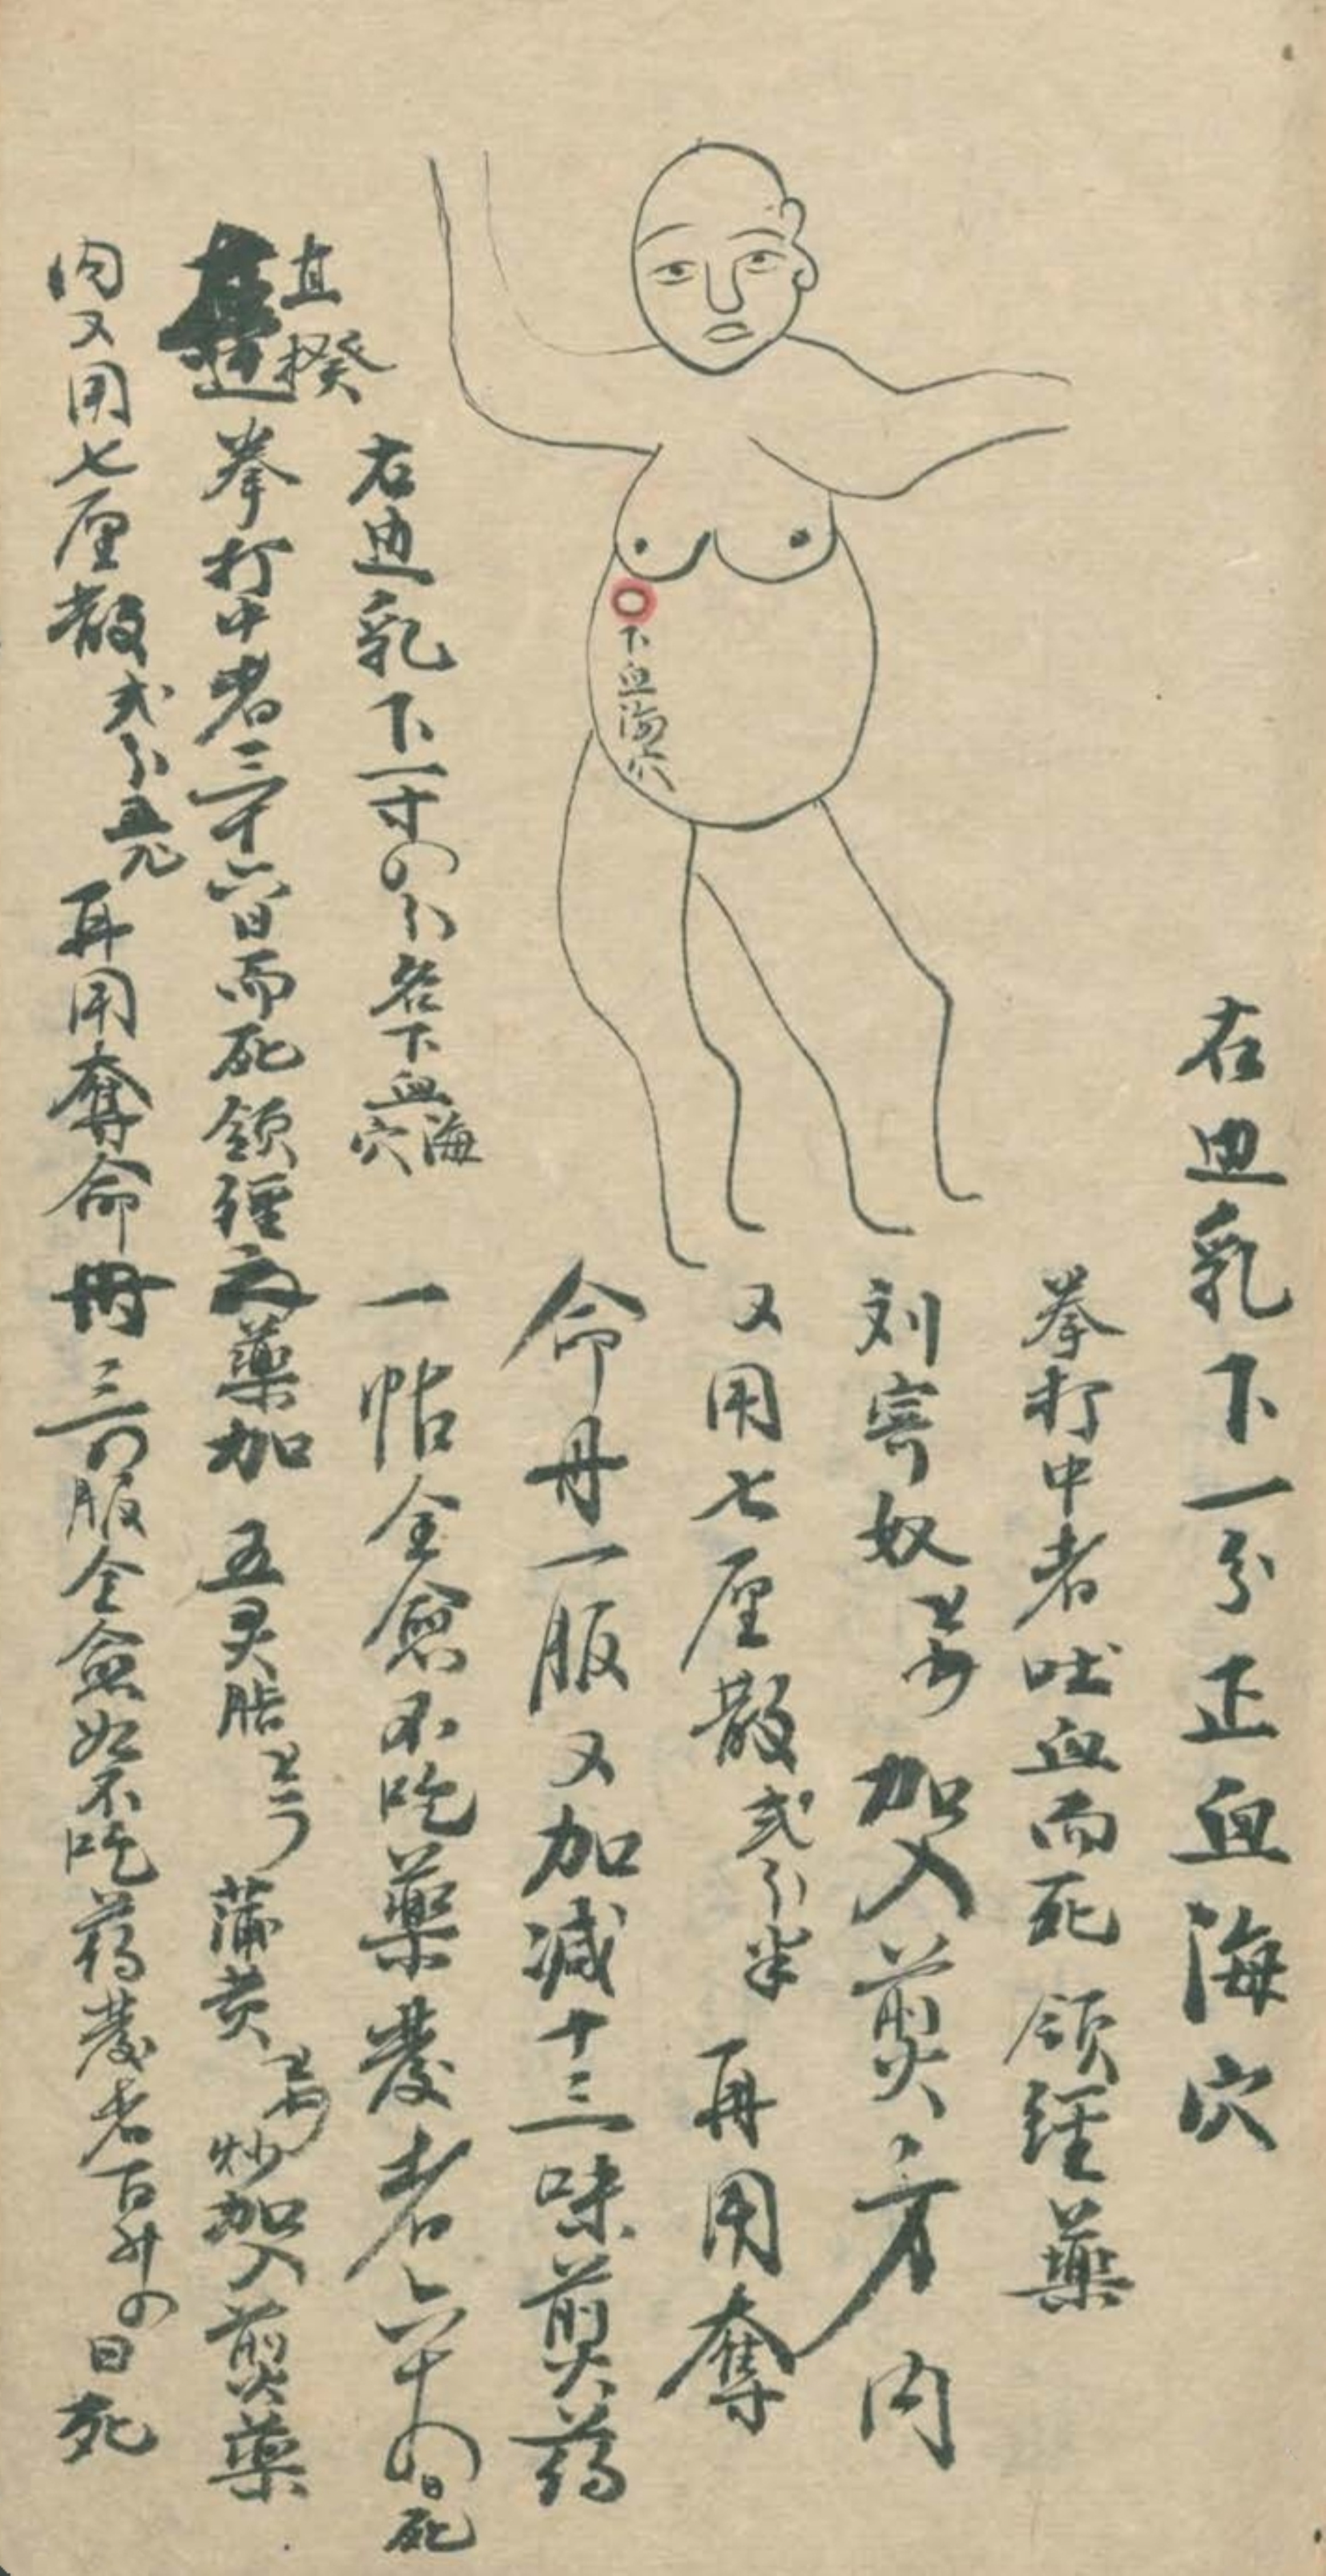 右边乳下一分正血海穴
拳打中者吐血而死 領經藥
刘寄奴 加入煎方内
又用七厘散弍分半 再用奪
命丹一服又加减十三味煎药
一帖全愈不吃藥發者六十四日死
下血海穴
右边乳下一寸四分名下血海穴
直揬
拳打中者三十六日而死領經之藥加 五灵脂 蒲黄 炒加入煎藥
内又用七厘散弍分五 再用奪命丹三四服全愈如不吃药發者百廿四日死